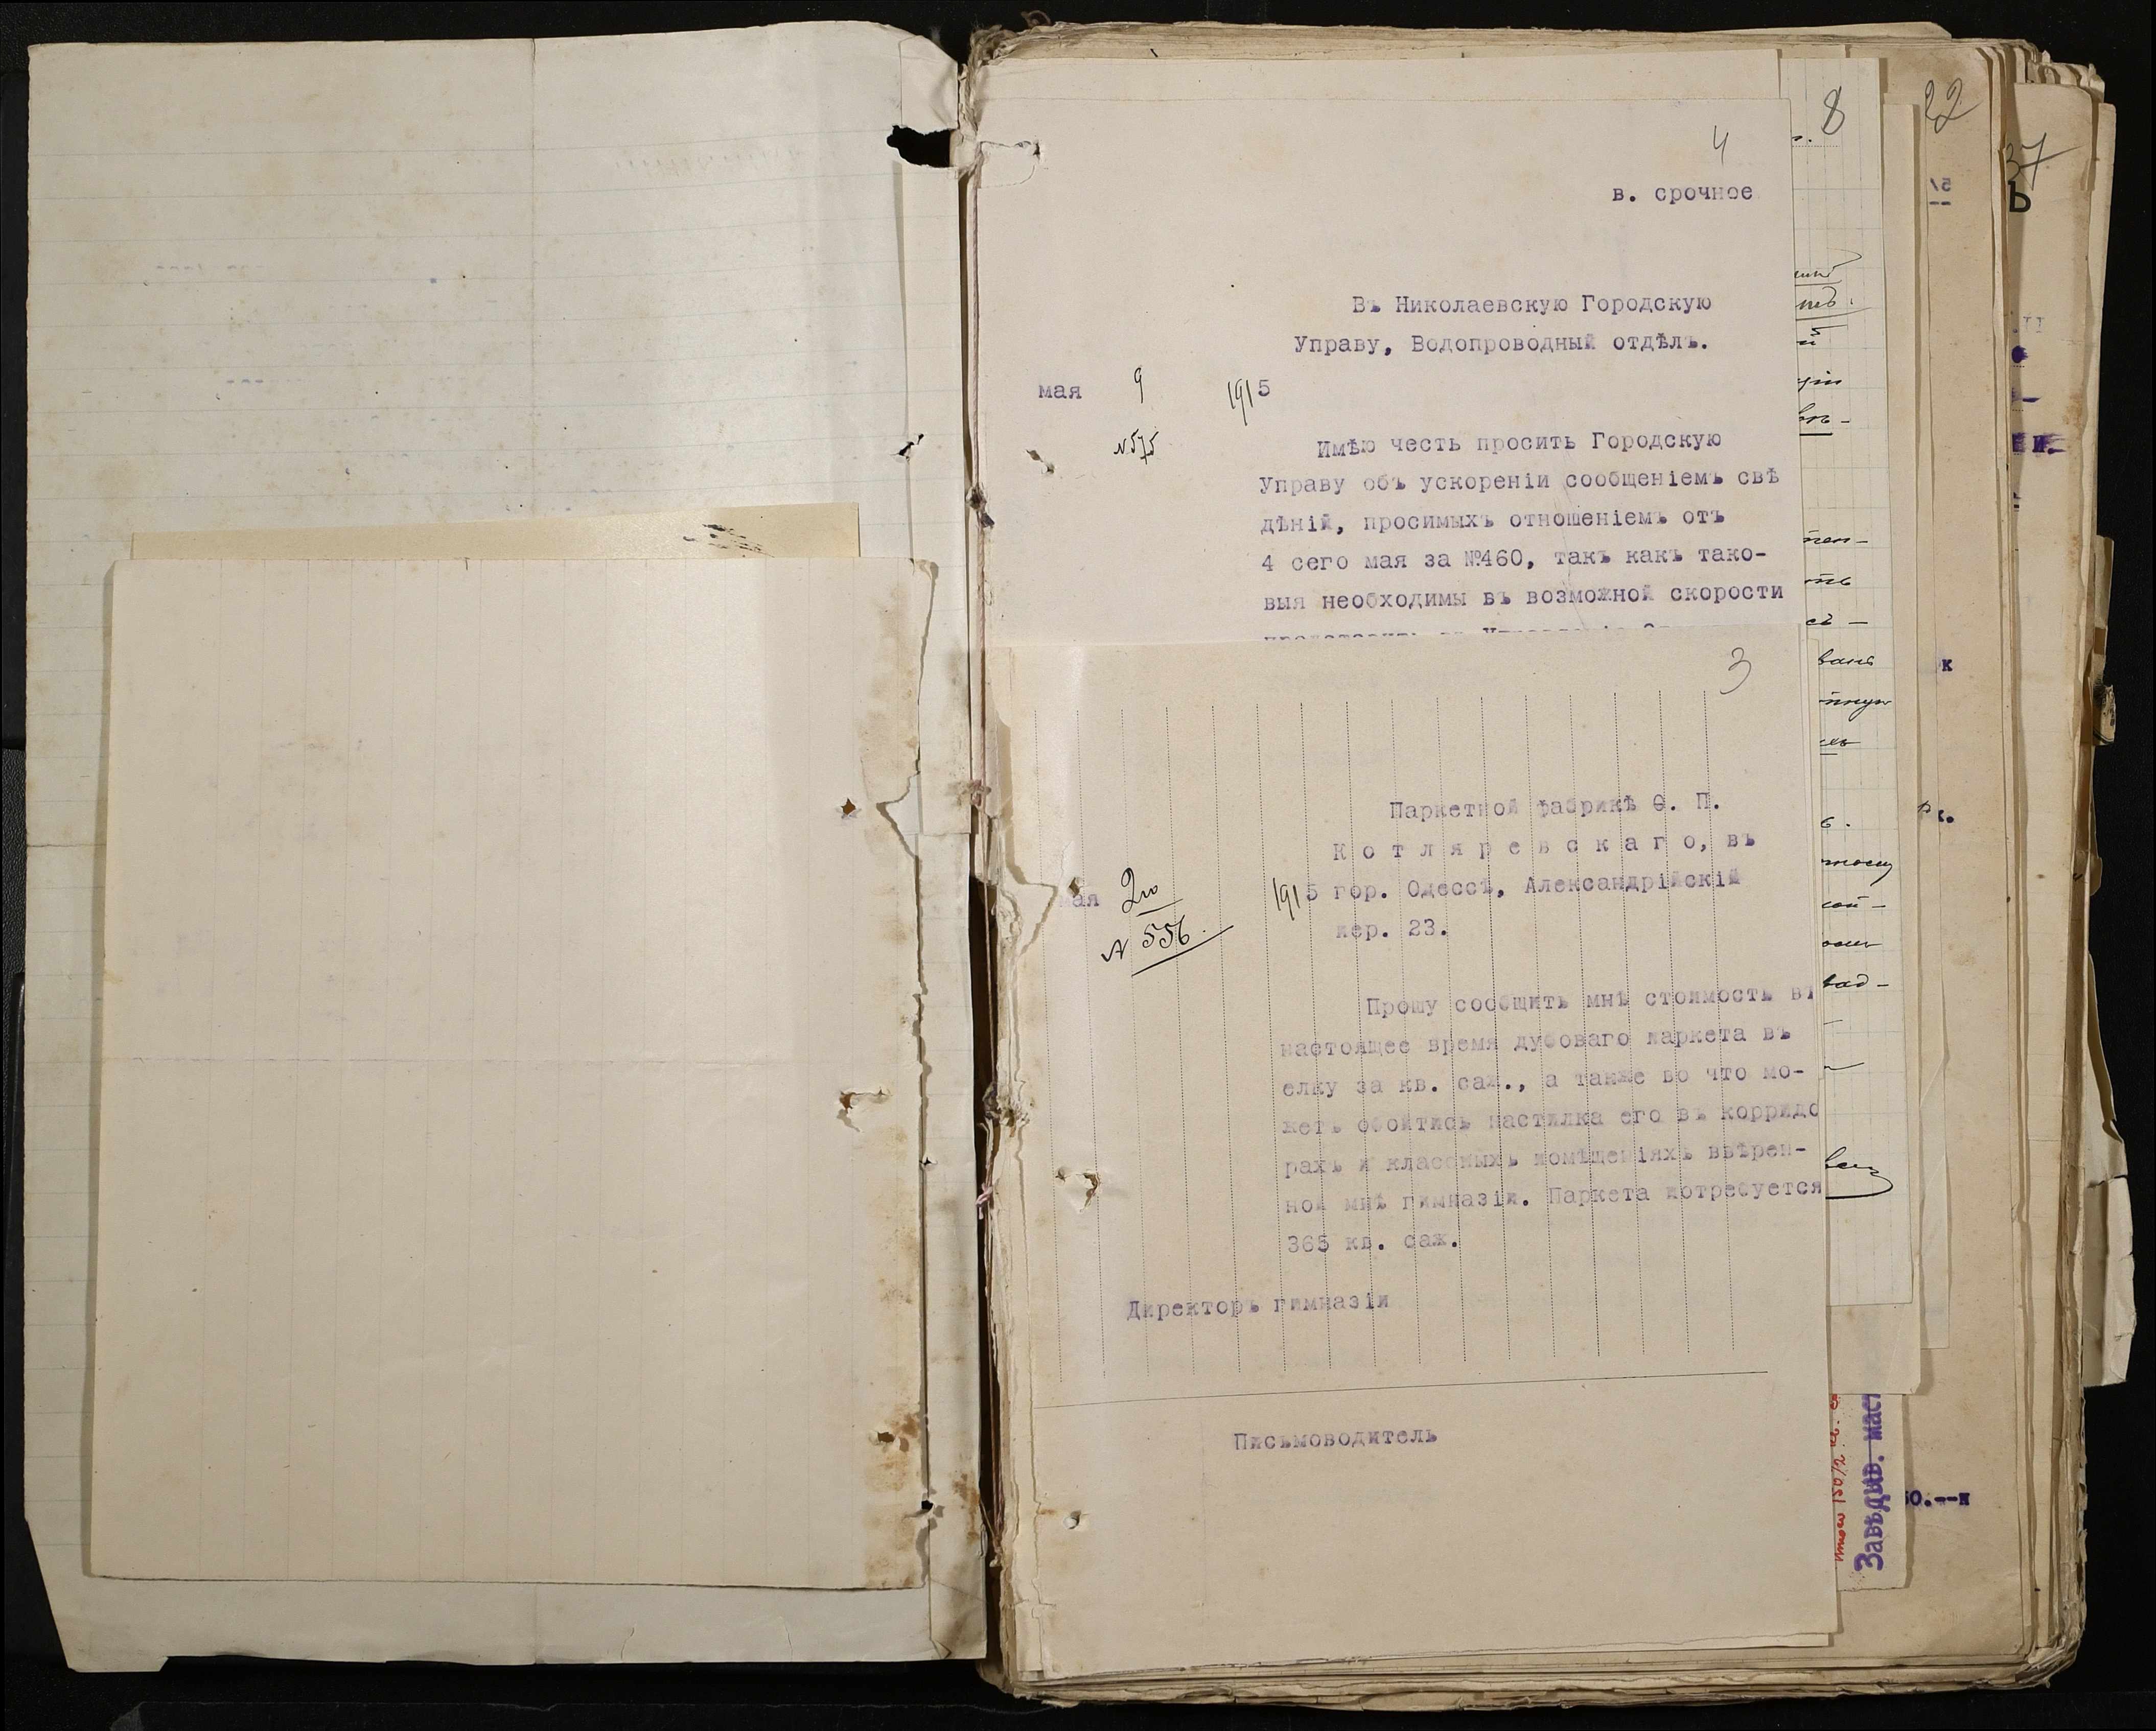 4
в. срочное
Въ Николаевскую Городскую
Управу, Водопроводный отдѣлъ.
мая 9 1915
№575
Имѣю честь просить Городскую
Управу объ ускореніи сообщеніемъ свѣ
дѣній, просимыхъ отношеніемъ отъ
4 сего мая за №460, такъ какъ тако-
выя необходимы въ возможной скорости
3
Паркетной фабрикѣ Ѳ. П.
Котляревскаго, въ
мая 2го 1915 гор. Одессѣ, Александрійскій
№ 556. пер. 23.
Прошу сообщить мнѣ стоимость въ
настоящее время дубоваго паркета въ
елку за кв. саж., а также во что мо-
жетъ обойтись настилка его въ корридо
рахъ и классныхъ помѣщеніяхъ ввѣрен-
ной мнѣ гимназіи. Паркета потребуется
365 кв. саж.
Директоръ гимназіи
Письмоводитель
8
22
37
Ь
Завѣдыв. маст
50.--к